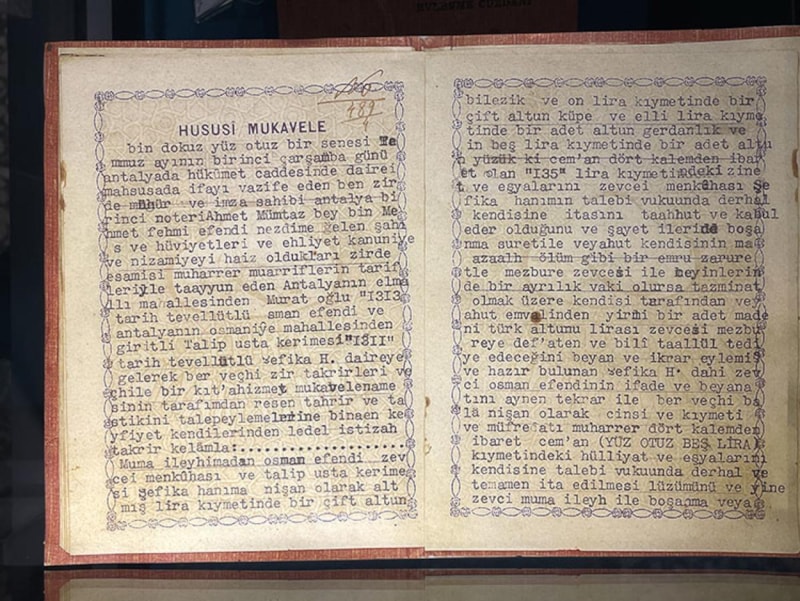 No
489
HUSUSİ MUKAVELE
bin dokuz yüz otuz bir senesi Te
mmuz ayının birinci çarşamba günü
antalyada hükûmet caddesinde dairei
mahsusada ifayı vazife eden ben zir
de mühür ve imza sahibi antalya bi
rinci noteriAhmet Mümtaz bey bin Me
hmet fehmi efendi nezdime gelen şahi
s ve hüviyetleri ve ehliyet kanuniye
ve nizamiyeyi haiz oldukları zirde
esamisi muharrer muarriflerin tarif
leriyle taayyun eden Antalyanın elma
lılı mahallesinden Murat oğlu "I3I3
tarih tevellütlü osman efendi ve
antalyanın osmaniye mahallesinden
giritli Talip usta kerimesi"I3II"
tarih tevellütlü Şefika H. daireye
gelerek ber veçhi zir takrirleri ve
çhile bir kıt'ahizmet mukavelename
sinin tarafımdan resen tahrir ve ta
stikini talepeylemelerine binaen ke
yfiyet kendilerinden ledel istizah
takrir kelâmla:....................
Muma ileyhimadan osman efendi zev
cei menkûhası ve talip usta kerime
si şefika hanıma nişan olarak alt
mış lira kıymetinde bir çift altun
bilezik ve on lira kıymetinde bir
çift altun küpe ve elli lira kıyme
tinde bir adet altun gerdanlık ve
in beş lira kıymetinde bir adet altu
n yüzük ki cem'an dört kalemden ibar
et olan "I35" lira kıymetindeki zine
t ve eşyalarını zevcei menkûhası Şe
fika hanımın talebi vukuunda derhal
kendisine itasını taahhut ve kabul
eder olduğunu ve şayet ileride boşa
nma suretile veyahut kendisinin ma
azaalh ölüm gibi bir emru zarure
tle mezbure zevcesi ile beyinlerin
de bir ayrılık vaki olursa tazminat
olmak üzere kendisi tarafından vey
ahut emvalinden yirmi bir adet made
ni türk altunu lirası zevcesi mezbu
reye def'aten ve bili taallül tedi
ye edeceğini beyan ve ikrar eylemiş
ve hazır bulunan Şefika H· dahi zev
ci osman efendinin ifade ve beyana
tını aynen tekrar ile ber veçhi ba
lâ nişan olarak cinsi ve kıymeti
ve müfredatı muharrer dört kalemden
ibaret cem'an (YÜZ OTUZ BEŞ LİRA)
kıymetindeki hülliyat ve eşyaların
kendisine talebi vukuunda derhal ve
temamen ita edilmesi lüzümünü ve yine
zevci muma ileyh ile boşanma veya